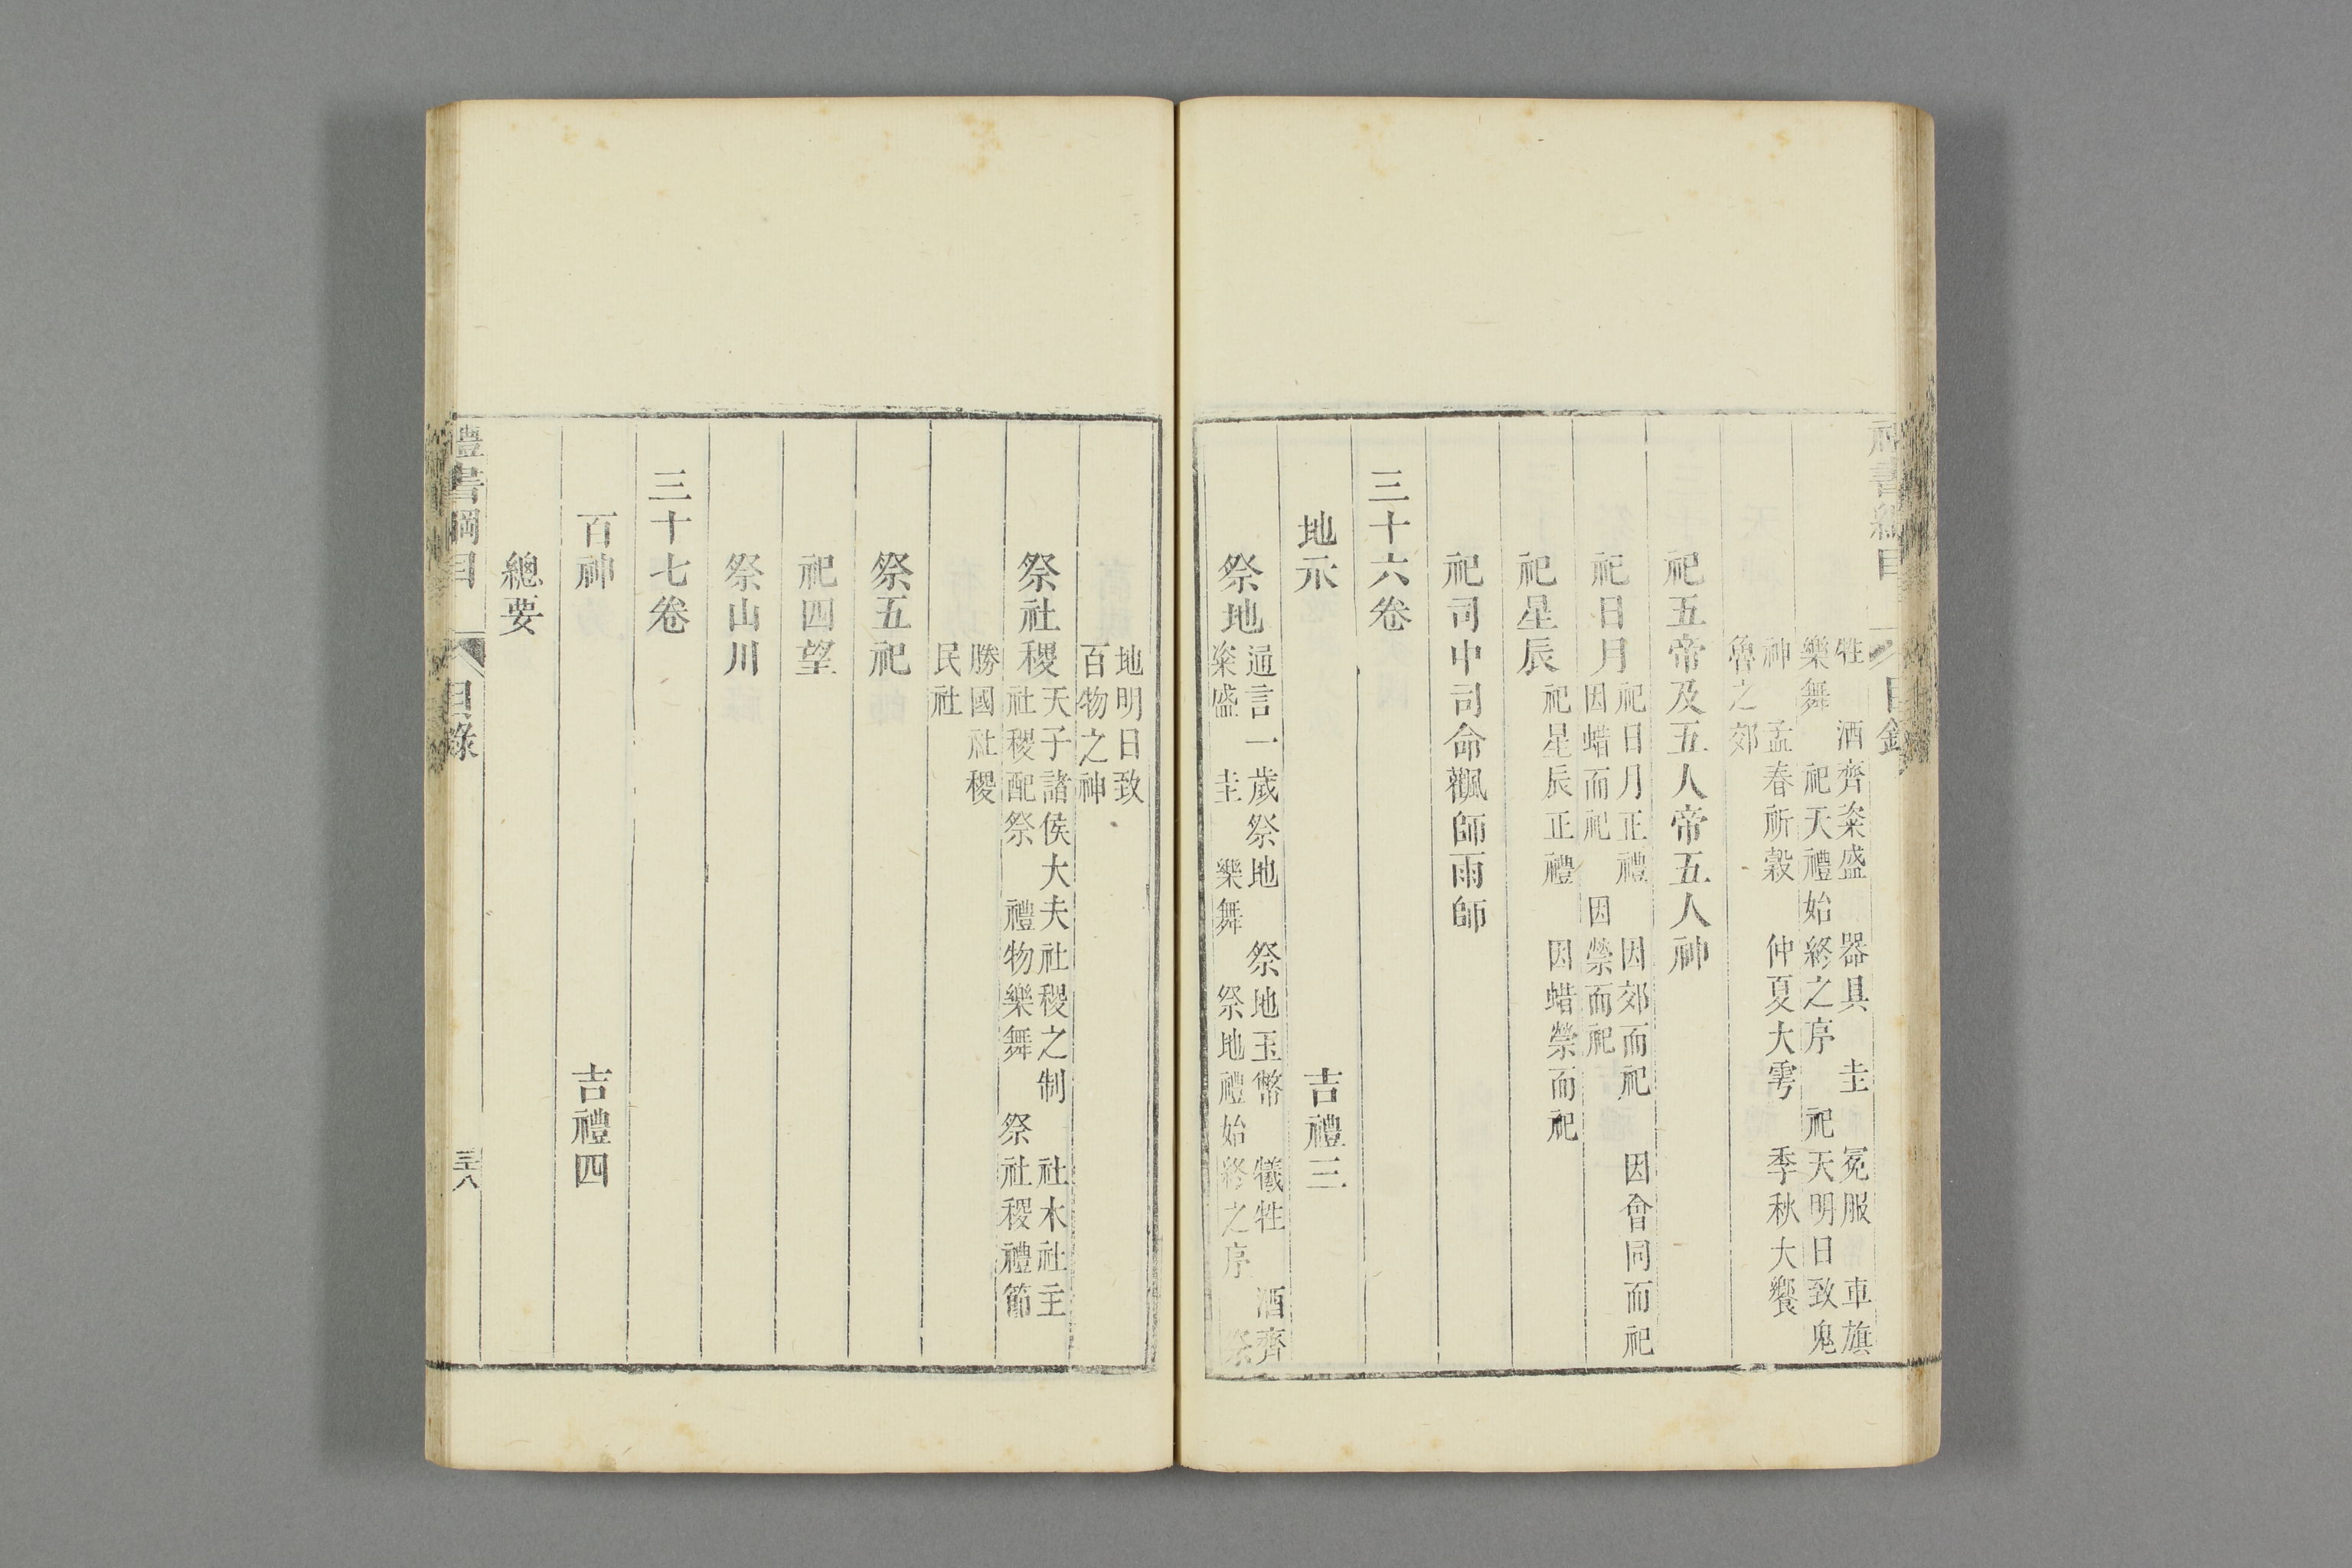 牲　酒齊粢盛　器具　圭　冕服　車旗
樂舞　祀天禮始終之序　祀天明日致鬼
神　孟春祈穀　仲夏大雩　季秋大饗
魯之郊
祀五帝及五人帝五人神
祀日月
祀日月正禮　因郊而祀　因會同而祀
因蜡而祀　因禜而祀
祀星辰
祀星辰正禮　因蜡禜而祀
祀司中司命飌師雨師
三十六卷
地示　吉禮三
祭地
通言一歲祭地　祭地玉幣　犧牲　酒齊
粢盛　圭　樂舞　祭地禮始終之序　祭
地明日致
百物之神
祭社稷
天子諸侯大夫社稷之制　社木社主
社稷配祭　禮物樂舞　祭社稷禮節
勝國社稷
民社
祭五祀
祀四望
祭山川
三十七卷
百神　吉禮四
總要
禮書綱目　目錄　三十八